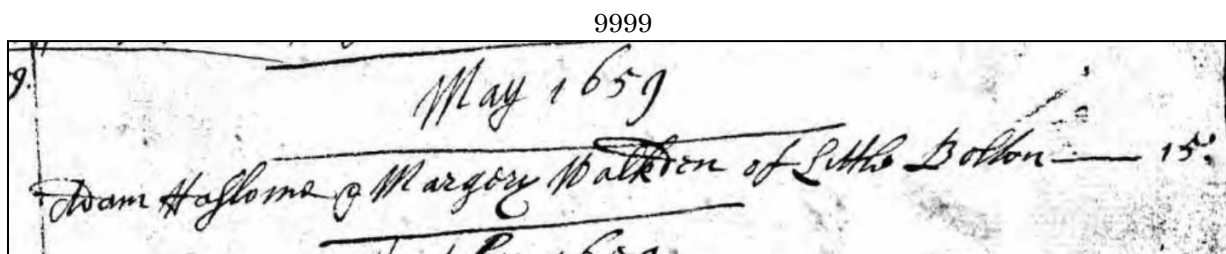 9999
9.
May 1659
Adam Haslome & Margery Walkden of Little Bolton — 15.
1659